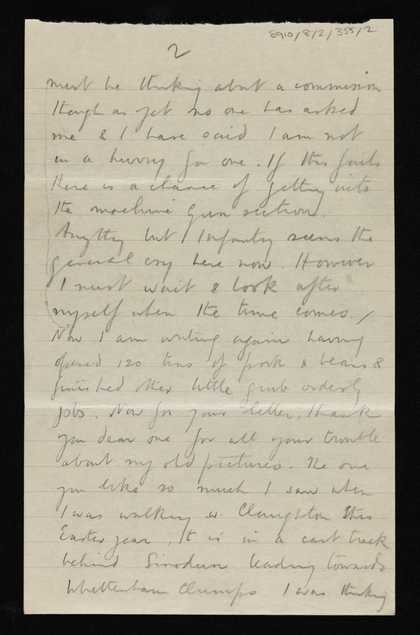 8910/8/2/355/2
2
must be thinking about a commission
though as yet no one has asked
me & I have said I am not
in a hurry for one. If this fails
there is a chance of getting into
the machine gun section.
Anything but Infantry seems the
general cry here now. However
I must wait & look after
myself when the time comes. /
Now I am writing again having
opened 120 tins of pork & beans &
finished other little grub orderly
jobs. Now for your letter, thank
you dear one for all your trouble
about my old pictures. The one
you like so much I saw when
I was walking w. Clungston this
Easter year, It is in a cart track
behind Sinodun leading towards
Whittenham Clumps I was thinking